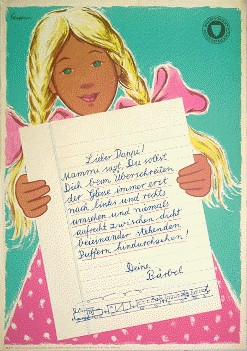 Lieber Pappi!
Mammi sagt, Du sollst
Dich beim Überschreiten
der Gleise immer erst
nach links und rechts
umsehen und niemals
aufrecht zwischen dicht
beieinander stehenden
Puffern hindurchgehen!
Deine
Bärbel